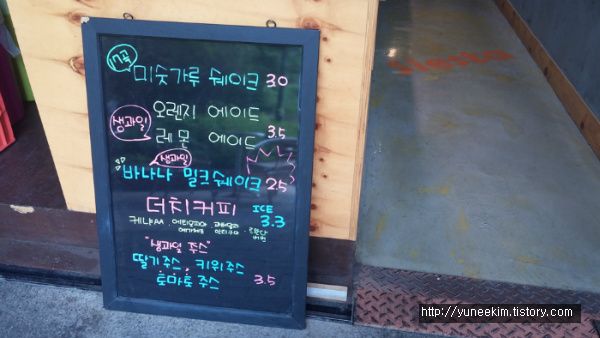 17곡
미숫가루 쉐이크 3.0
오렌지 에이드
생과일
레몬 에이드 3.5
생과일
바나나 밀크쉐이크 2.5
더치커피 ICE 3.3
케냐AA 에티오피아
"생과일 주스"
딸기주스, 키위주스
토마토주스 3.5
siesta
http://yuneekim.tistory.com